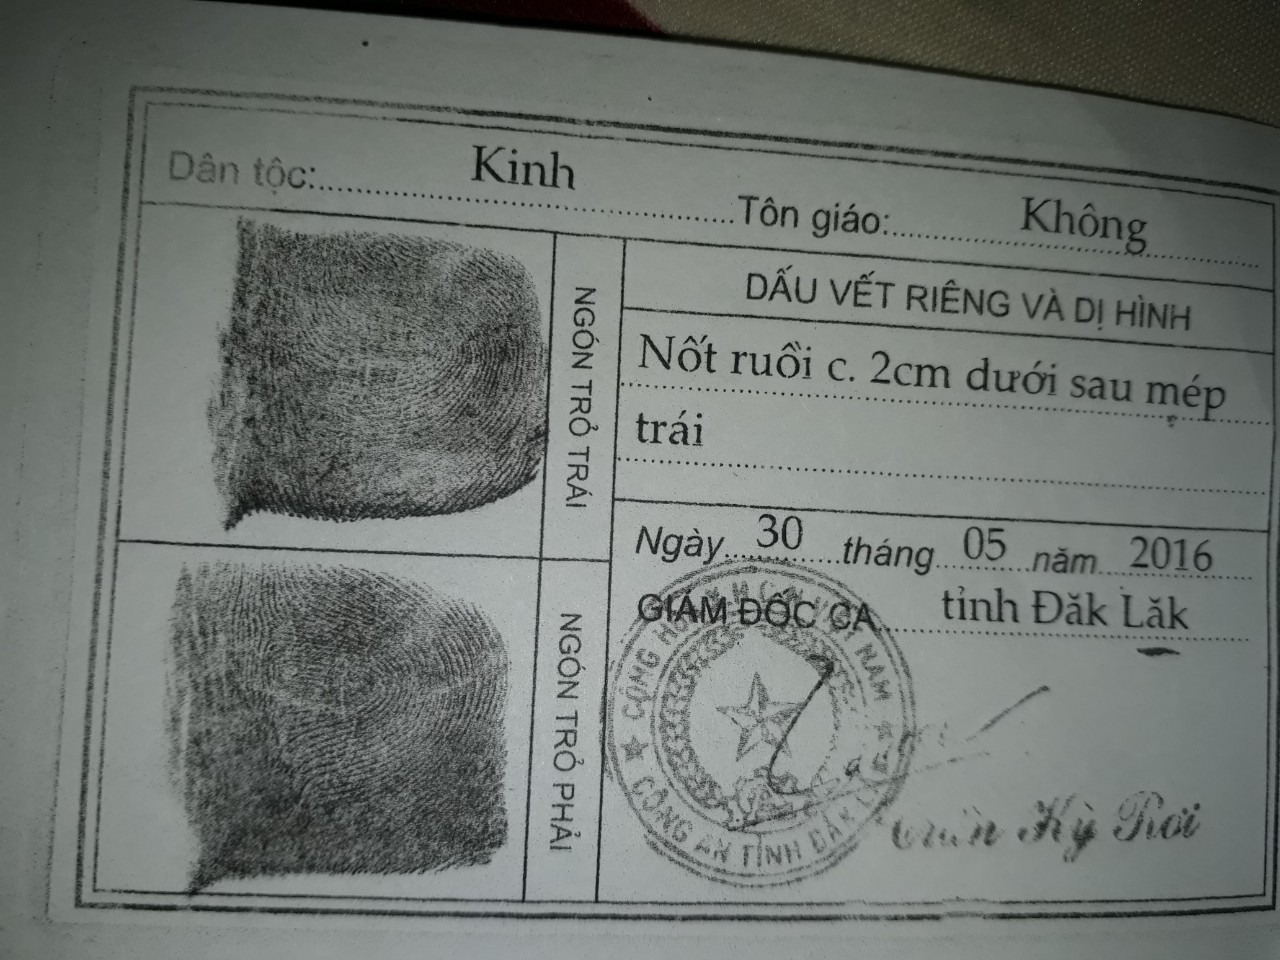 Dân tộc: Kinh Tôn giáo: Không
NGÓN TRỎ TRÁI
DẤU VẾT RIÊNG VÀ DỊ HÌNH
Nốt ruồi c. 2cm dưới sau mép
trái
Ngày 30 tháng 05 năm 2016
GIÁM ĐỐC CA tỉnh Đăk Lăk
NGÓN TRỎ PHẢI
CÔNG AN TỈNH ĐĂK LĂK
Trần Kỳ Rơi